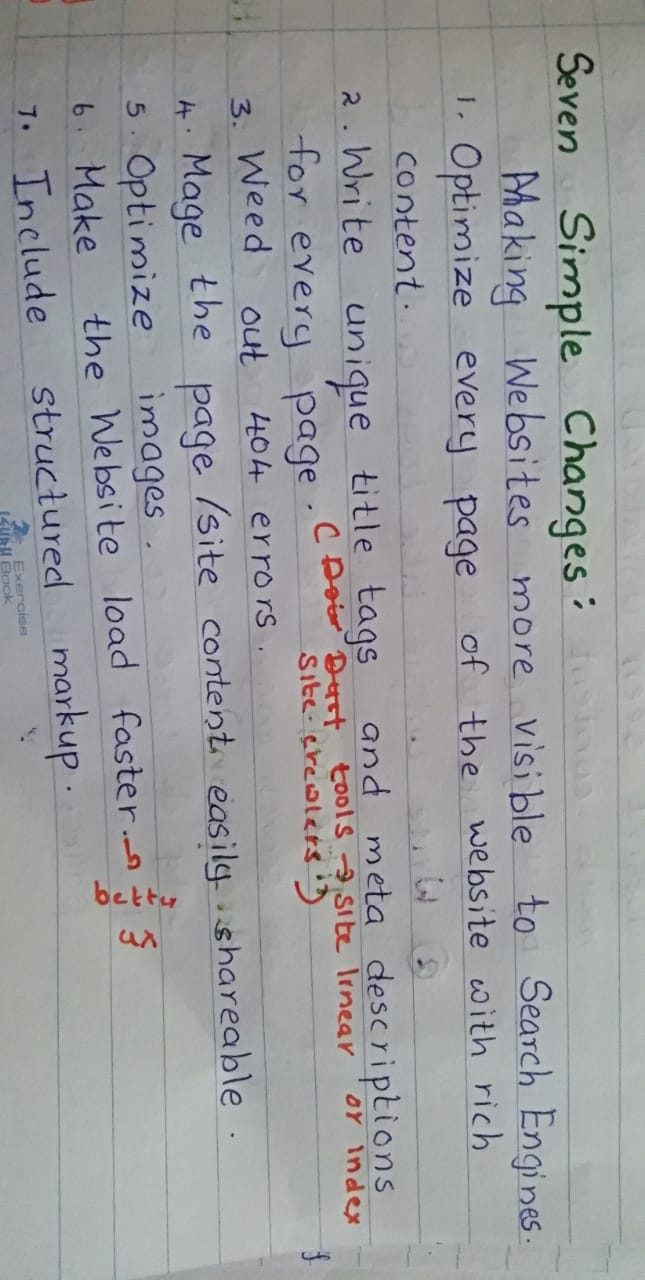 Seven Simple Changes:
Making Websites more visible to Search Engines.
1. Optimize every page of the website with rich
content.
2. Write unique title tags and meta descriptions
for every page. ( Dust tools → site linear or index
site crewlers)
3. Weed out 404 errors.
4. Mage the page/site content easily shareable.
5. Optimize images.
6. Make the Website load faster.
7. Include structured markup.
Exercise
Book